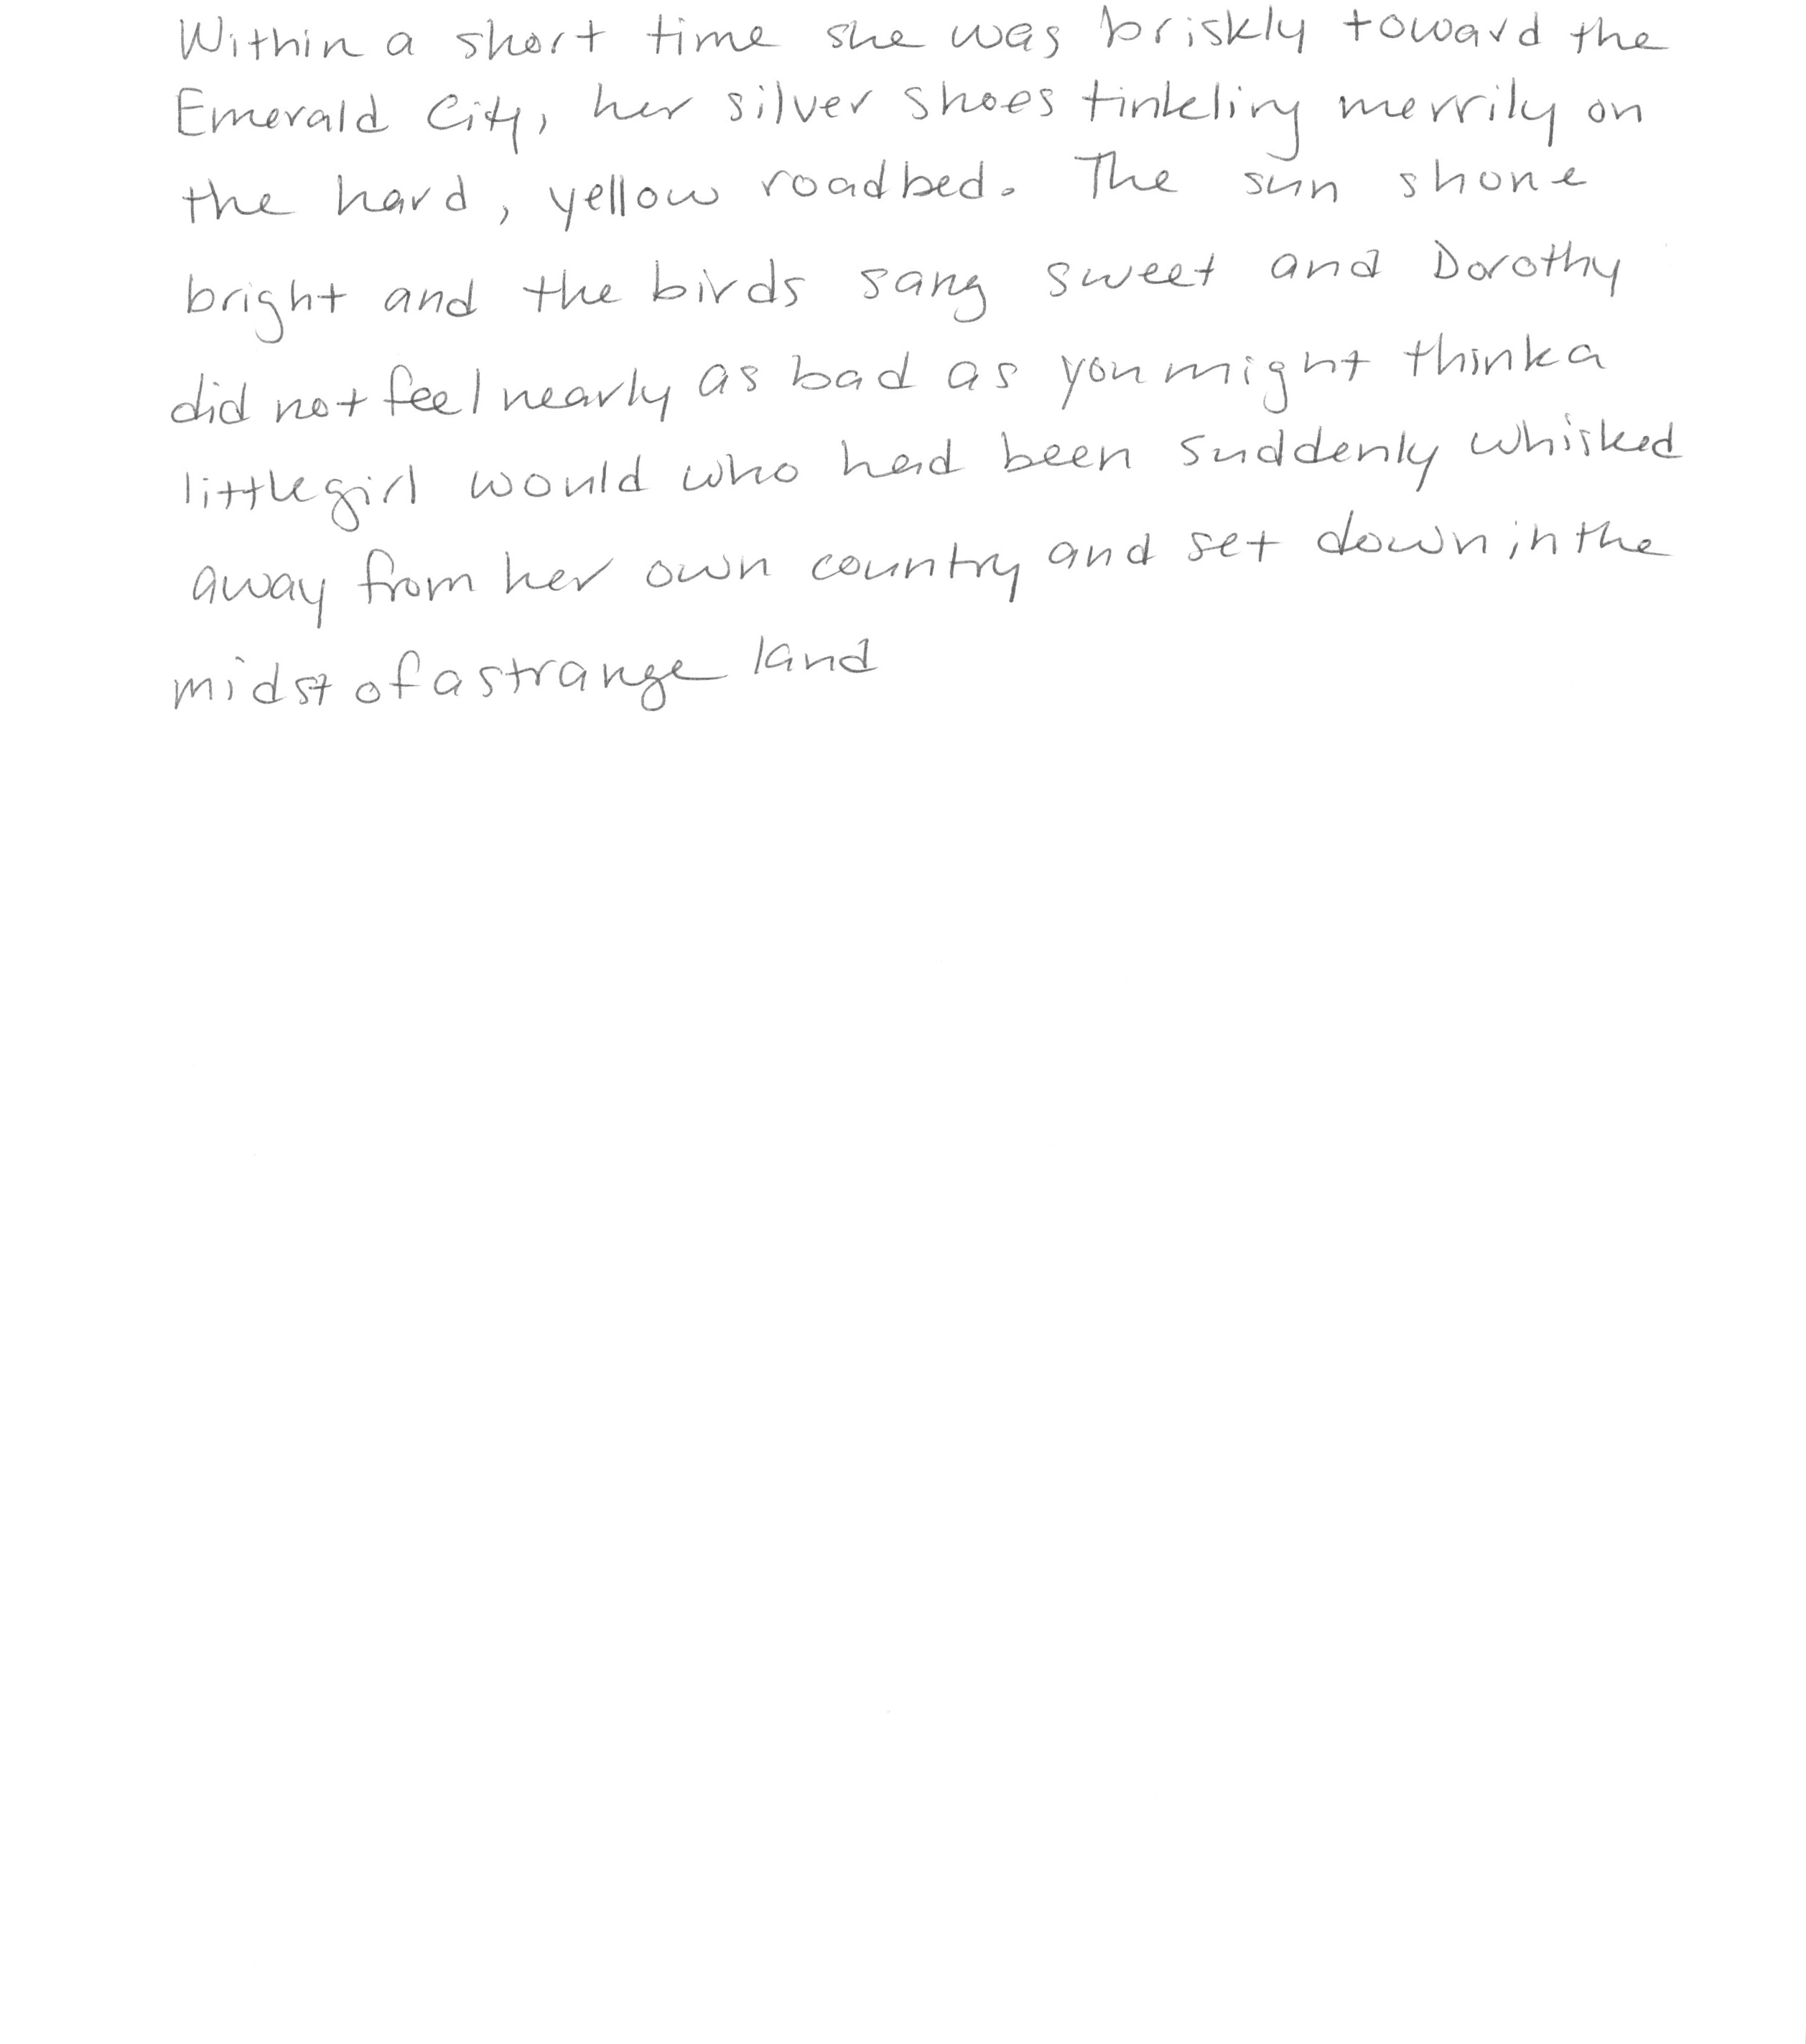 Within a short time she was briskly toward the
Emerald City, her silver shoes tinkling merrily on
the hard, yellow roadbed. The sun shone
bright and the birds sang sweet and Dorothy
did not feel nearly as bad as you might think a
little girl would who had been suddenly whisked
away from her own country and set down in the
midst of a strange land